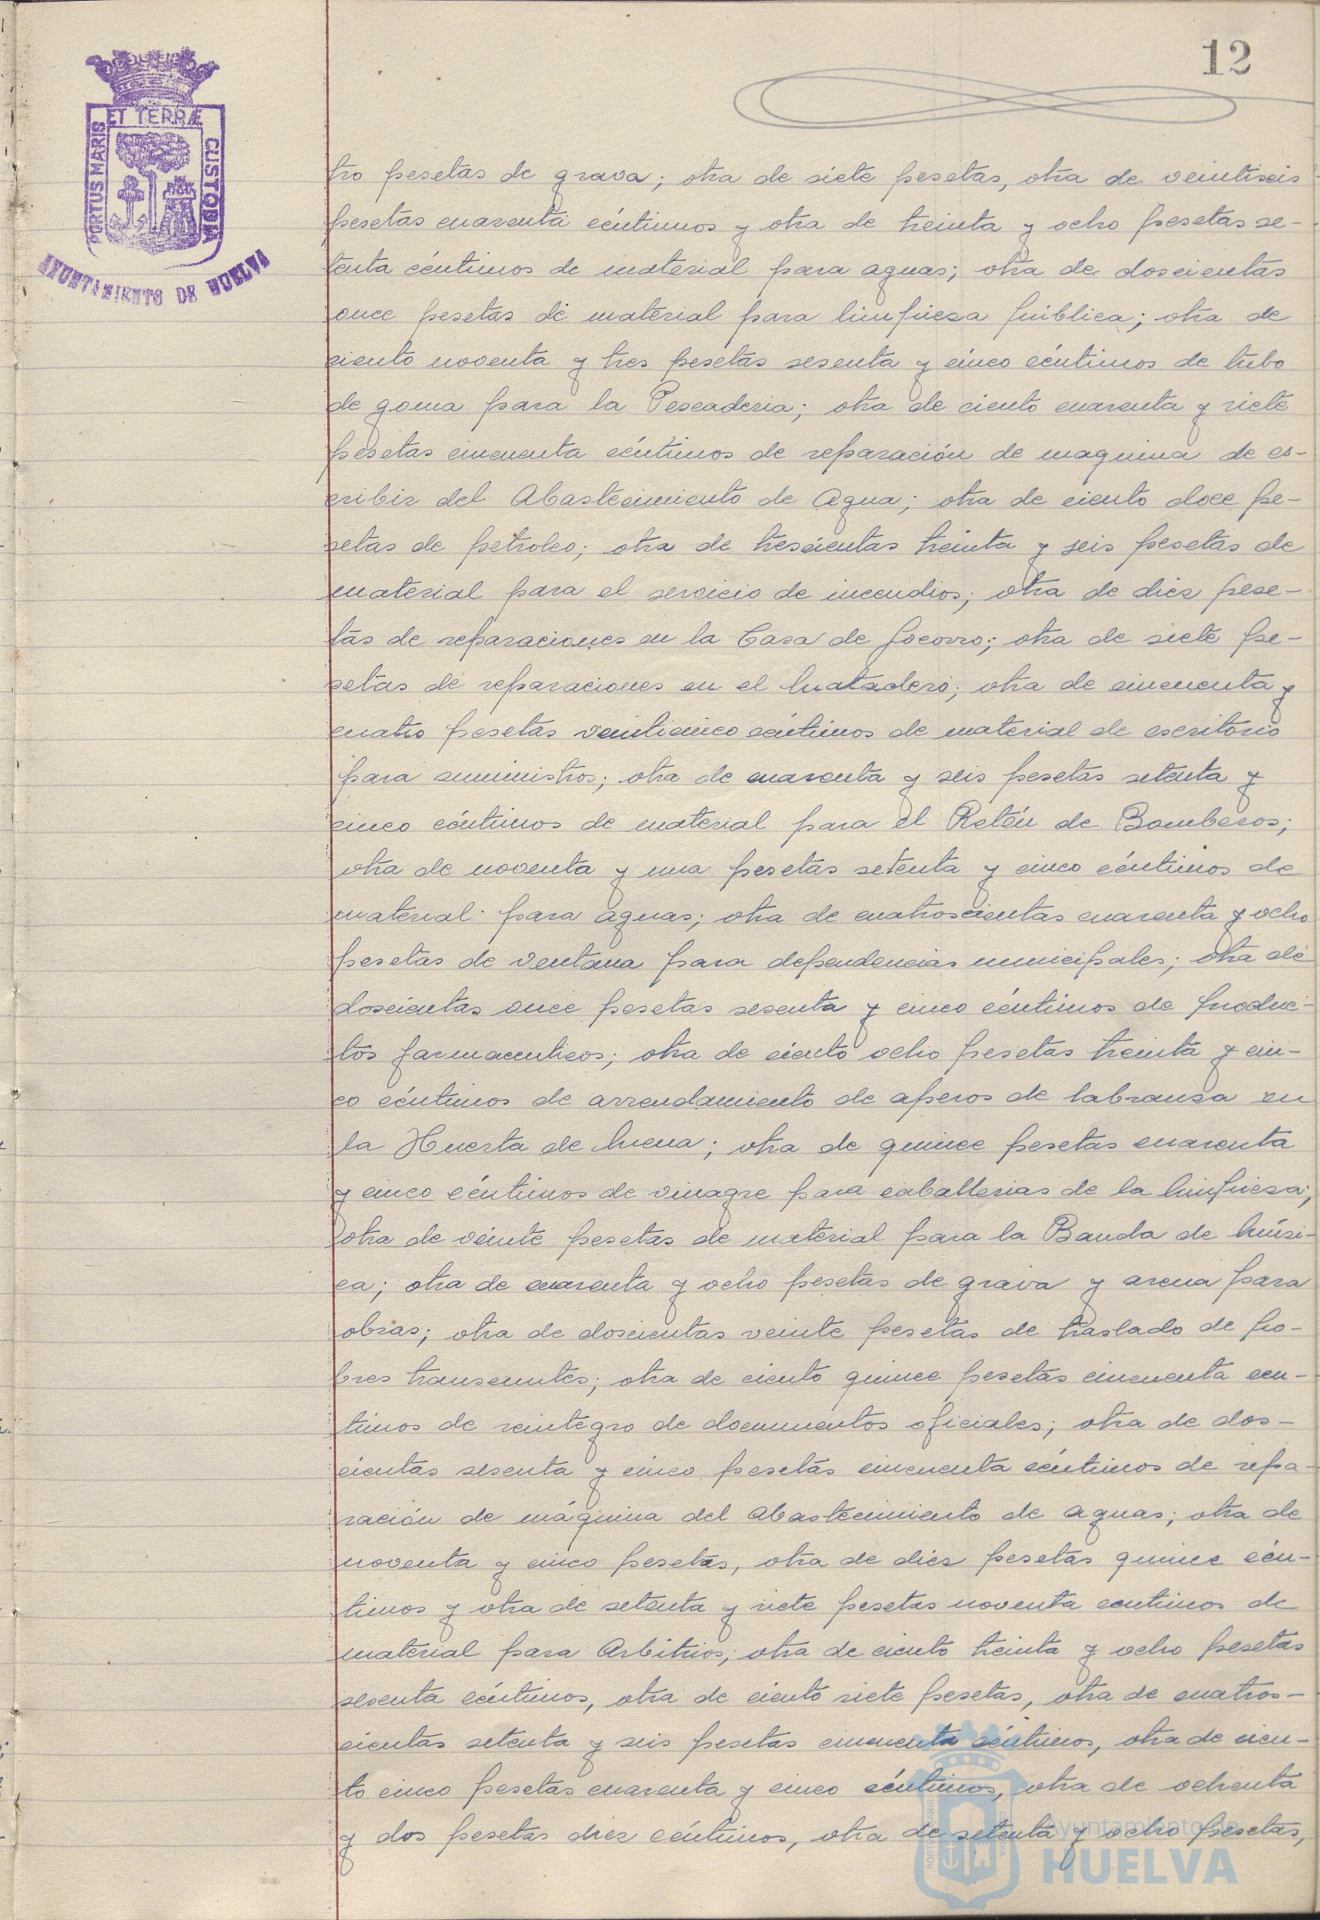 12
PORTUS MARIS ET TERRÆ CUSTODIA
AYUNTAMIENTO DE HUELVA
tro pesetas de grava; otra de siete pesetas, otra de veintiseis
pesetas cuarenta céntimos y otra de treinta y ocho pesetas se-
tenta céntimos de material para aguas; otra de doscientas
once pesetas de material para limpieza pública; otra de
ciento noventa y tres pesetas sesenta y cinco céntimos de tubo
de goma para la Pescaderia; otra de ciento cuarenta y siete
pesetas cincuenta céntimos de reparación de maquina de es-
cribir del Abastecimiento de Agua; otra de ciento doce pe-
setas de petroleo; otra de trescientas treinta y seis pesetas de
material para el servicio de incendios; otra de diez pese-
tas de reparaciones en la Casa de Socorro; otra de siete pe-
setas de reparaciones en el Matadero; otra de cincuenta y
cuatro pesetas veinticinco céntimos de material de escritorio
para suministros; otra de cuarenta y seis pesetas setenta y
cinco céntimos de material para el Retén de Bomberos;
otra de noventa y una pesetas setenta y cinco céntimos de
material para aguas; otra de cuatroscientas cuarenta y ocho
pesetas de ventana para dependencias municipales; otra de
doscientas once pesetas sesenta y cinco céntimos de produc-
tos farmaceuticos; otra de ciento ocho pesetas treinta y cin-
co céntimos de arrendamiento de aperos de labranza en
la Huerta de Mena; otra de quince pesetas cuarenta
y cinco céntimos de vinagre para caballerias de la limpieza;
otra de veinte pesetas de material para la Banda de Músi-
ca; otra de cuarenta y ocho pesetas de grava y arena para
obras; otra de doscientas veinte pesetas de traslado de po-
bres transeuntes; otra de ciento quince pesetas cincuenta cen-
timos de reintegro de documentos oficiales; otra de dos-
cientas sesenta y cinco pesetas cincuenta céntimos de repa-
ración de máquina del abastecimiento de aguas; otra de
noventa y cinco pesetas, otra de diez pesetas quince cén-
timos y otra de setenta y siete pesetas noventa centimos de
material para Arbitrios; otra de ciento treinta y ocho pesetas
sesenta céntimos, otra de ciento siete pesetas, otra de cuatros-
cientas setenta y seis pesetas cincuenta céntimos, otra de cien-
to cinco pesetas cuarenta y cinco céntimos, otra de ochenta
y dos pesetas diez céntimos, otra de setenta y ocho pesetas,
Ayuntamiento de
HUELVA